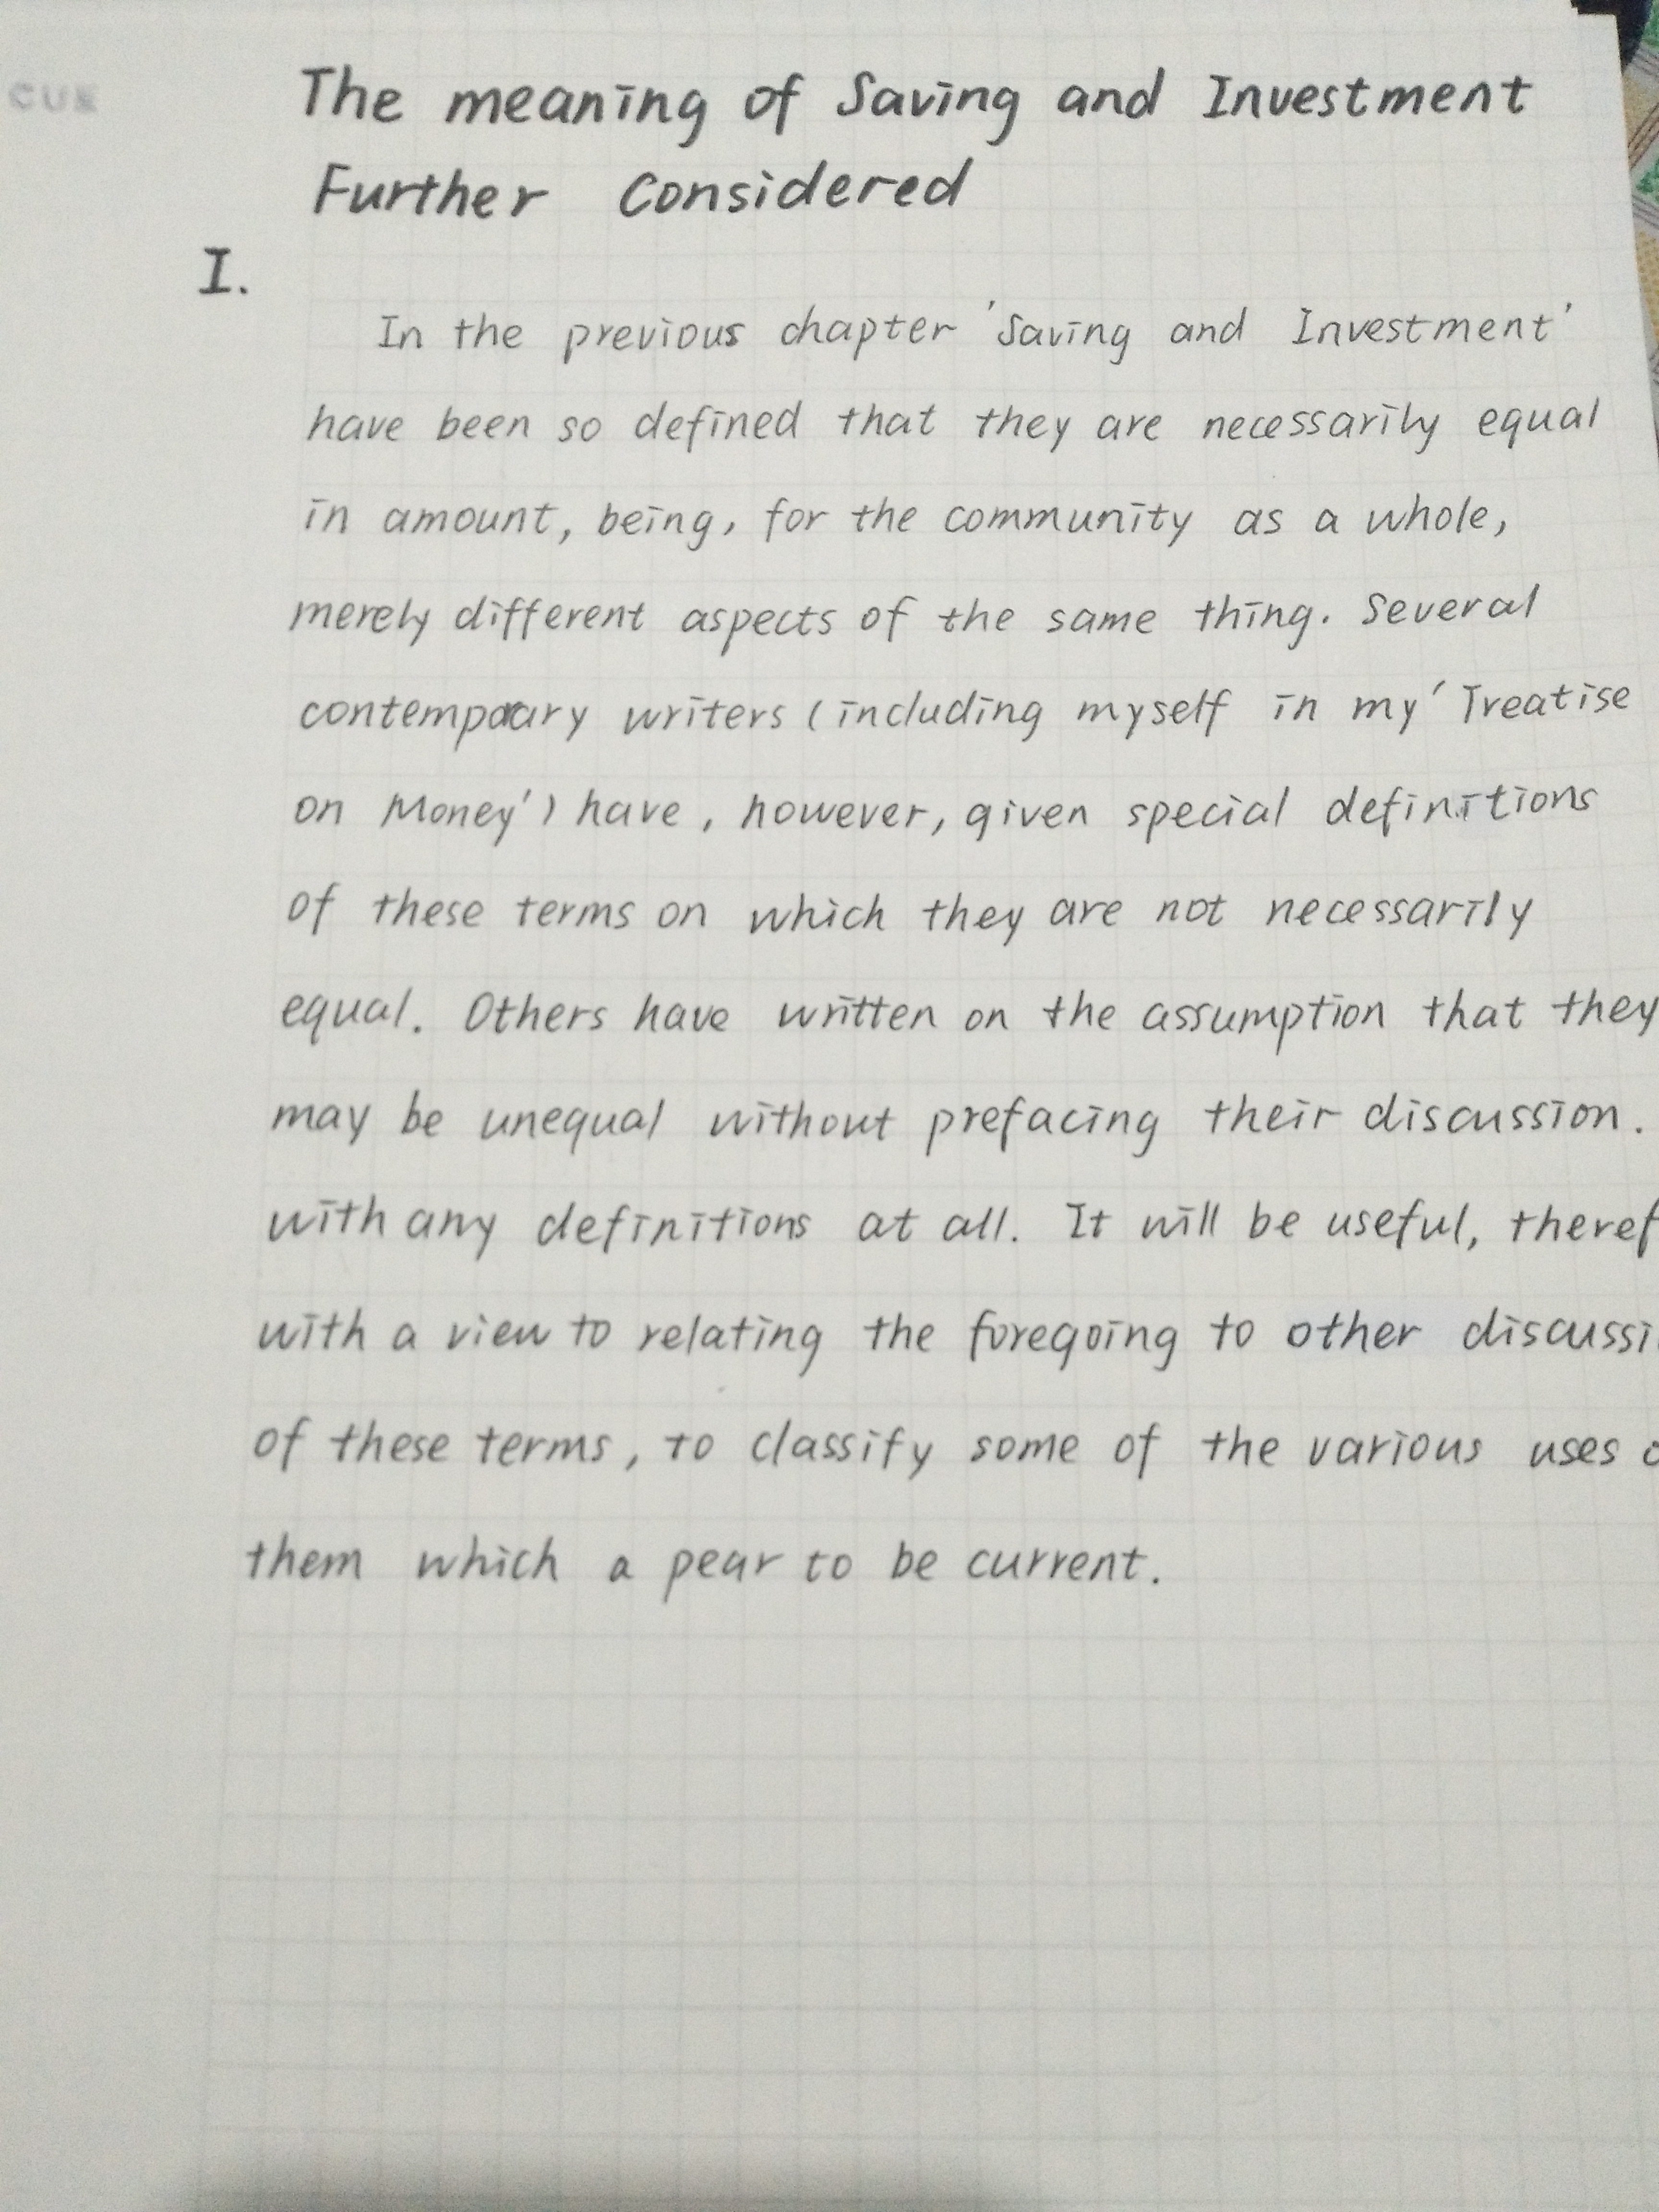 CUE
The meaning of Saving and Investment
Further Considered
I.
In the previous chapter 'Saving and Investment'
have been so defined that they are necessarily equal
in amount, being, for the community as a whole,
merely different aspects of the same thing. Several
contemporary writers (including myself in my 'Treatise
on Money') have, however, given special definitions
of these terms on which they are not necessarily
equal. Others have written on the assumption that they
may be unequal without prefacing their discussion.
with any definitions at all. It will be useful, theref
with a view to relating the foregoing to other discussi
of these terms, to classify some of the various uses o
them which a pear to be current.